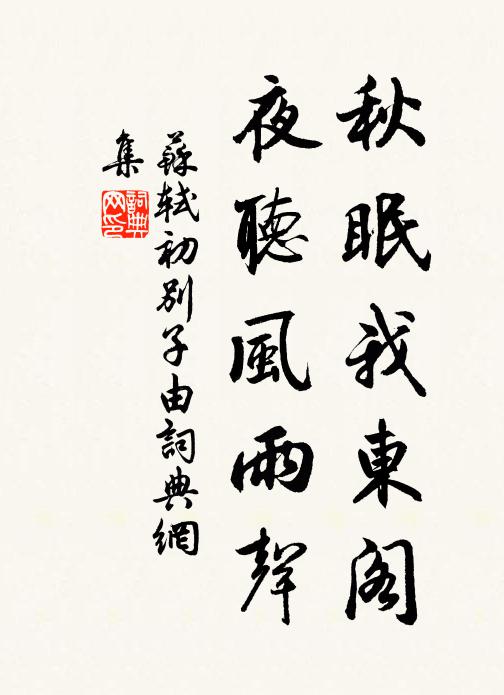 秋眠我東阁
夜聽風雨聲
蘇軾初别子由詞典網
集
詞典网印